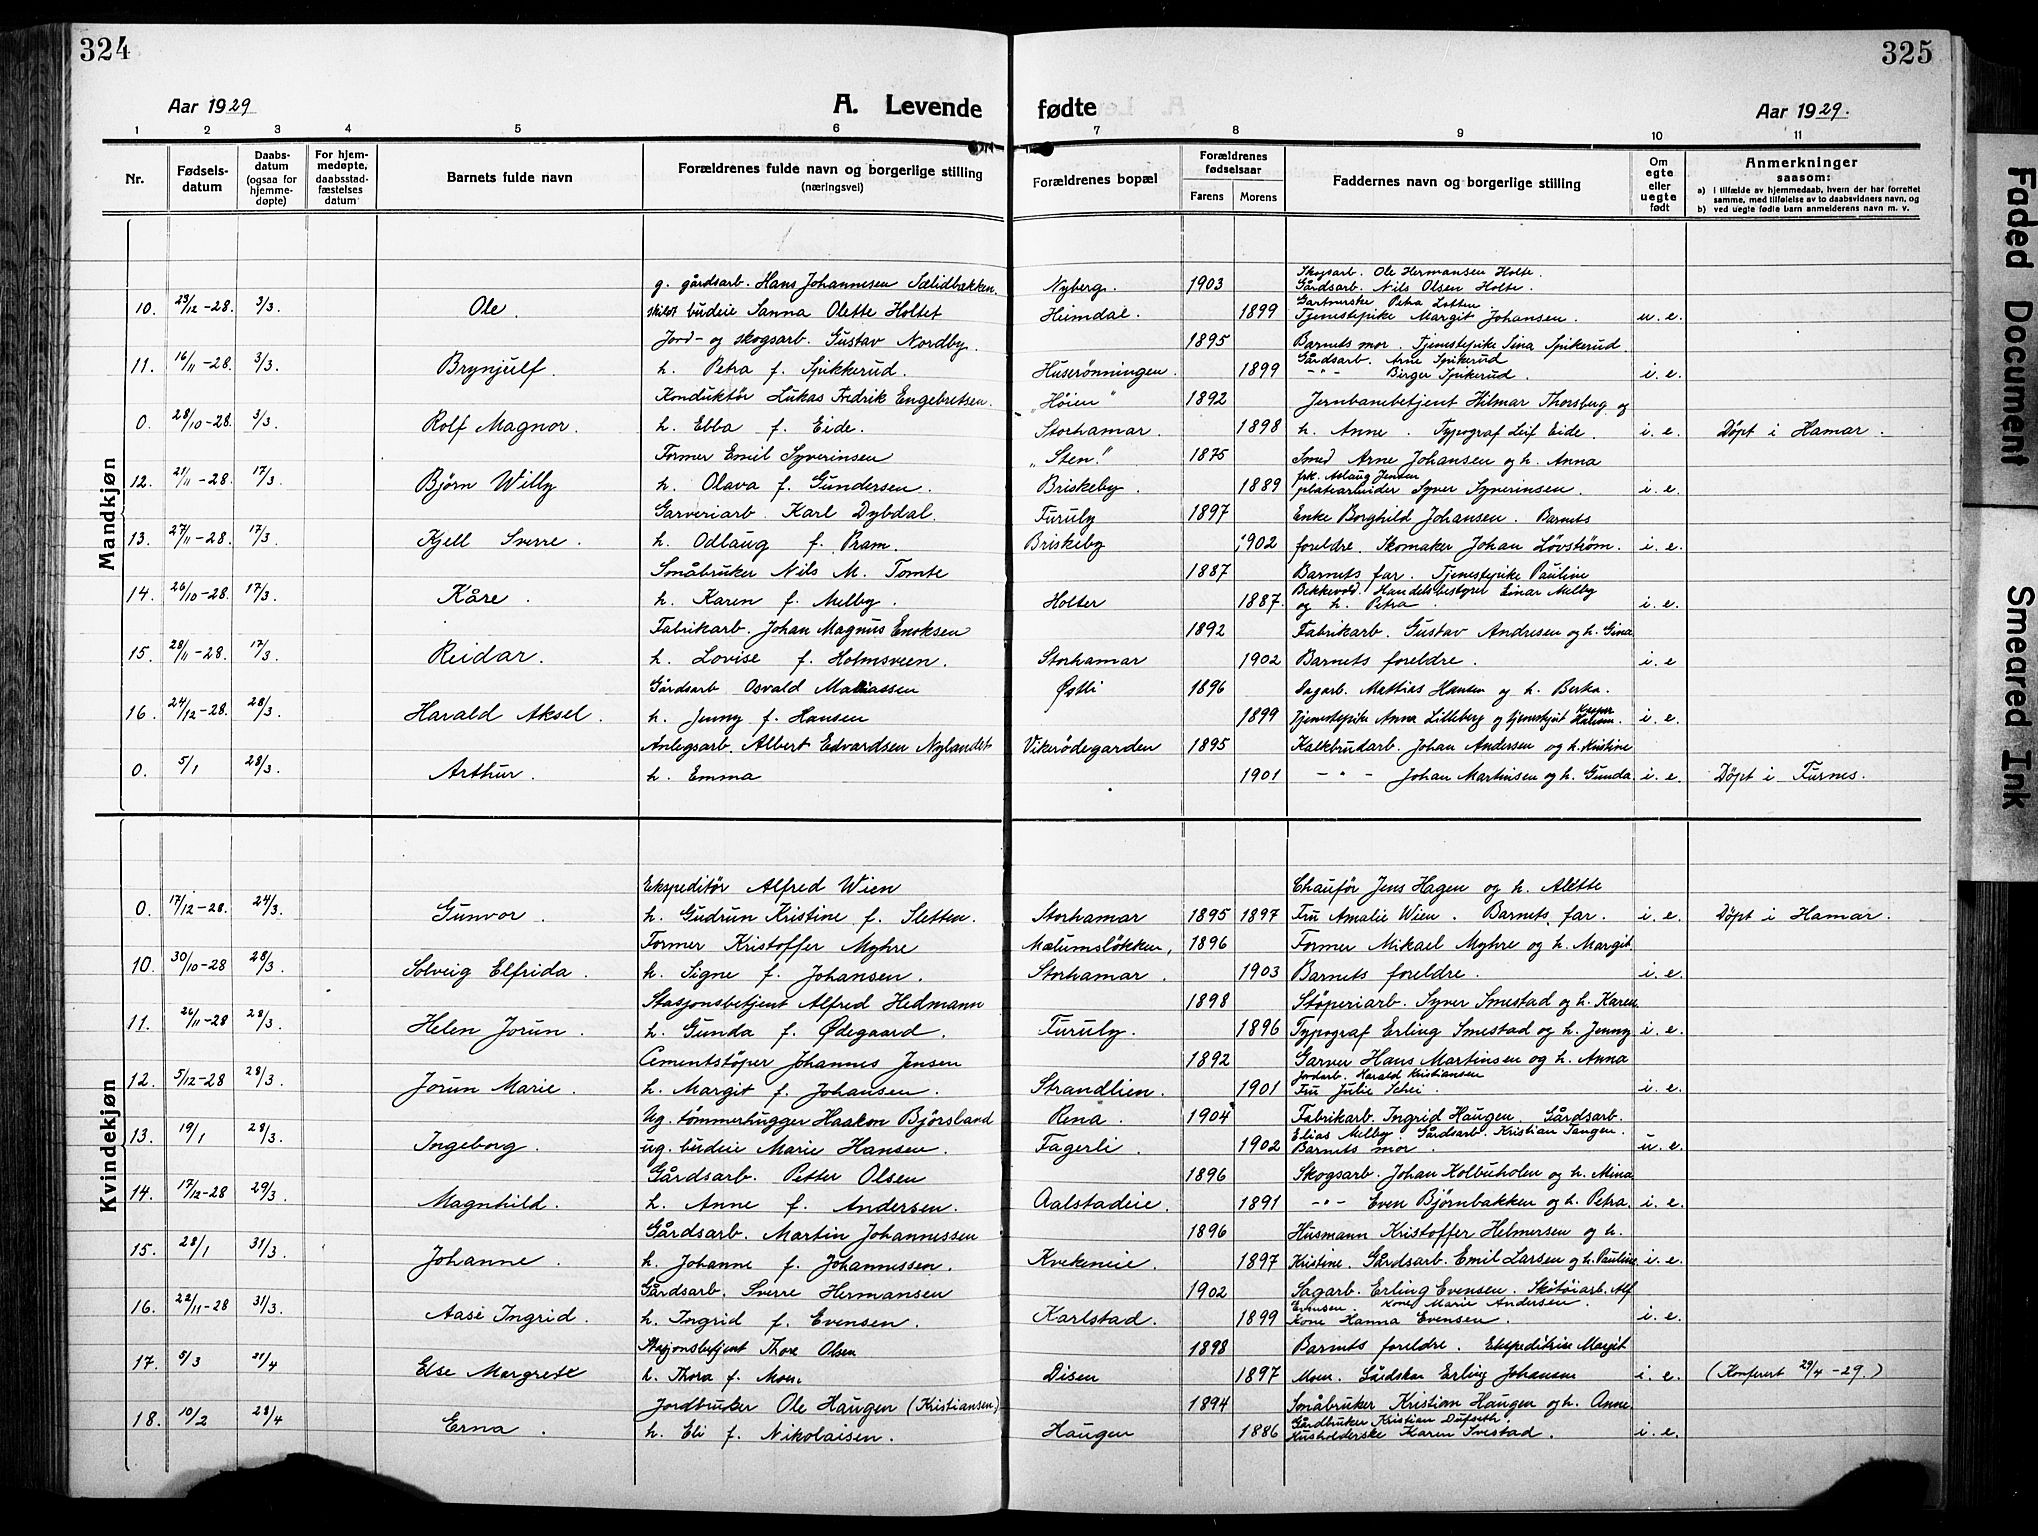 324
325
Aar 1929
A. Levende fødte
Aar 1929.
1 2 3 4 5 6 7 8 9 10 11
Nr.
Fødsels-
datum
Daabs-
datum
(ogsaa for
hjemme-
døpte)
For hjem-
medøpte,
daabsstad-
fæstelses
datum
Barnets fulde navn
Forældrenes fulde navn og borgerlige stilling
(næringsvei)
Forældrenes bopæl
Forældrenes
fødselsaar
Farens Morens
Faddernes navn og borgerlige stilling
Om
egte
eller
uegte
født
Anmerkninger
saasom:
a) i tilfælde av hjemmedaab, hvem der har forrettet
samme, med tilføielse av to daabsvidners navn, og
b) ved uegte fødte barn anmelderens navn m. v.
Mandkjøn
g. gårdsarb. Hans Johannesen Sælidbækken. Nyberg. 1903 Skogsarb. Ole Hermansen Holte. Gårdsarb. Nils Olsen Holte.
10. 23/12-28. 3/3. Ole. skilt budeie Sanna Olette Holtet Heimdal. 1899 Gartnerske Petra Lotten Tjenestepike Margit Johansen. u. e.
Jord- og skogsarb. Gustav Nordby. 1895 Barnets mor. Tjenestepike Sina Spikerud.
11. 16/11-28. 3/3. Brynjulf. h. Petra f. Spikkerud. Huserønningen. 1899 Gårdsarb. Arne Spikerud -"- Birger Spikerud. i. e.
Konduktør Lukas Fredrik Engebretsen. "Høien" 1892 Jernbanebetjent Hilmar Thorsberg og
0. 28/10-28. 3/3. Rolf Magnor. h. Ebba f. Eide. Storhamar. 1898 h. Anne. Typograf Leif Eide. i. e. Døpt i Hamar.
Former Emil Syverinsen "Sten." 1875 Smed Arne Johansen og h. Anna
12. 21/11-28. 17/3. Bjørn Willy h. Olava f. Gundersen. Briskeby. 1889 frk. Aslaug Jensen platearbeider Syver Syverinsen. i. e.
Garveriarb. Karl Dybdal. Furuly 1897 Enke Borghild Johansen. Barnets
13. 27/11-28. 17/3. Kjell Sverre. h. Odlaug f. Bram. Briskeby 1902 foreldre. Skomaker Johan Løvstrøm. i. e.
Småbruker Nils M. Tomte 1887 Barnets far. Tjenestepike Pauline
14. 26/10-28. 17/3. Kåre. h. Karen f. Melby. Holter 1887. Bekkevold. Handelsbestyrer Einar Melby og h. Petra. i. e.
Fabrikarb. Johan Magnus Enoksen 1892 Fabrikarb. Gustav Andresen og h. Gina
15. 28/11-28. 17/3. Reidar. h. Lovise f. Holmsveen. Storhamar 1902 Barnets foreldre. i. e
Gårdsarb Osvald Matiassen Østli 1896 Dagarb. Mattias Hansen og h. Berta.
16. 24/12-28. 28/3. Harald Aksel. h. Jenny f. Hansen 1899 Tjenestepike Anna Lilleberg og tjenestejut Kasper Hansen. i. e.
Anlegsarb. Albert Edvardsen Nylandet Vikerødegarden 1895 Kalkbrudarb. Johan Andersen og h. Kristine
0. 5/1 28/3. Arthur. h. Emma 1901 -"- Johan Martinsen og h. Gunda. i. e. Døpt i Furnes.
Kvindekjøn
Ekspeditør Alfred Wien Chaufør Jens Hagen og h. Alette
0. 17/12-28. 24/3. Gunvor. h. Gudrun Kristine f. Sletten. Storhamar 1895 1897 Fru Amalie Wien. Barnets far. i. e. Døpt i Hamar.
Former Kristoffer Myhre Mælumsløkken, 1896 Former Mikael Myhre og h. Margit
10. 30/10-28 28/3. Solveig Elfrida. h. Signe f. Johansen. Storhamar. 1903 Barnets foreldre. i. e.
Stasjonsbetjent Alfred Hedmann 1898 Støperiarb. Syver Smestad og h. Karen
11. 26/11-28 28/3. Helen Jorun. h. Gunda f. Ødegaard. Furuly. 1896 Typograf Erling Smestad og h. Jenny i. e.
Cementstøper Johannes Jensen 1892 Garver Hans Martinsen og h. Anna
12. 5/12-28 28/3. Jorun Marie. h. Margit f. Johansen. Strandlien. 1901 Jordarb. Harald Kristiansen Fru Julie Schei. i. e.
Ug. tømmerhugger Haakon Bjørsland Rena. 1904 Fabrikarb. Ingrid Haugen. Gårdsarb.
13. 19/1 28/3. Ingeborg. ug. budeie Marie Hansen. Fagerli. 1902 Elias Melby. Gårdsarb. Kristian Tangen. Barnets mor. u. e.
Gårdsarb. Petter Olsen 1896 Skogsarb. Johan Kolbuholen og h. Mina
14. 17/12-28 29/3. Magnhild. h. Anne f. Andersen. Aalstadeie. 1891 -"- Even Bjørnbakken og h. Petra. i. e.
Gårdsarb. Martin Johannessen 1896 Husmann Kristoffer Helmersen og h.
15. 28/1 31/3. Johanne. h. Johanne f. Johannessen. Kvekeneie. 1897 Kristine. Gårdsarb. Emil Larsen og h. Pauline i. e.
Gårdsarb. Sverre Hermansen 1902 Sagarb. Erling Evensen. Skotøiarb. Alf
16. 22/11-28 31/3. Aase Ingrid. h. Ingrid f. Evensen. Karlstad. 1899 Evensen. Kone Marie Andersen. Kone Hanna Evensen. i. e.
Stasjonsbetjent Thore Olsen 1898 Barnets foreldre. Ekspeditrise Margit
17. 5/3 21/4 Else Margrete h. Thora f. Moen Disen 1897 Moen. Erling Johansen i. e. (Konferert 29/4-29.)
Jordbruker Ole Haugen (Kristiansen) 1894 Småbruker Kristian Haugen og h. Anne
18. 10/2 28/4 Erna. h. Eli f. Nikolaisen. Haugen 1886 Gårdbruker Kristian Dufseth. Husholderske Karen Ivestad. i. e.
Faded Document
Smeared Ink